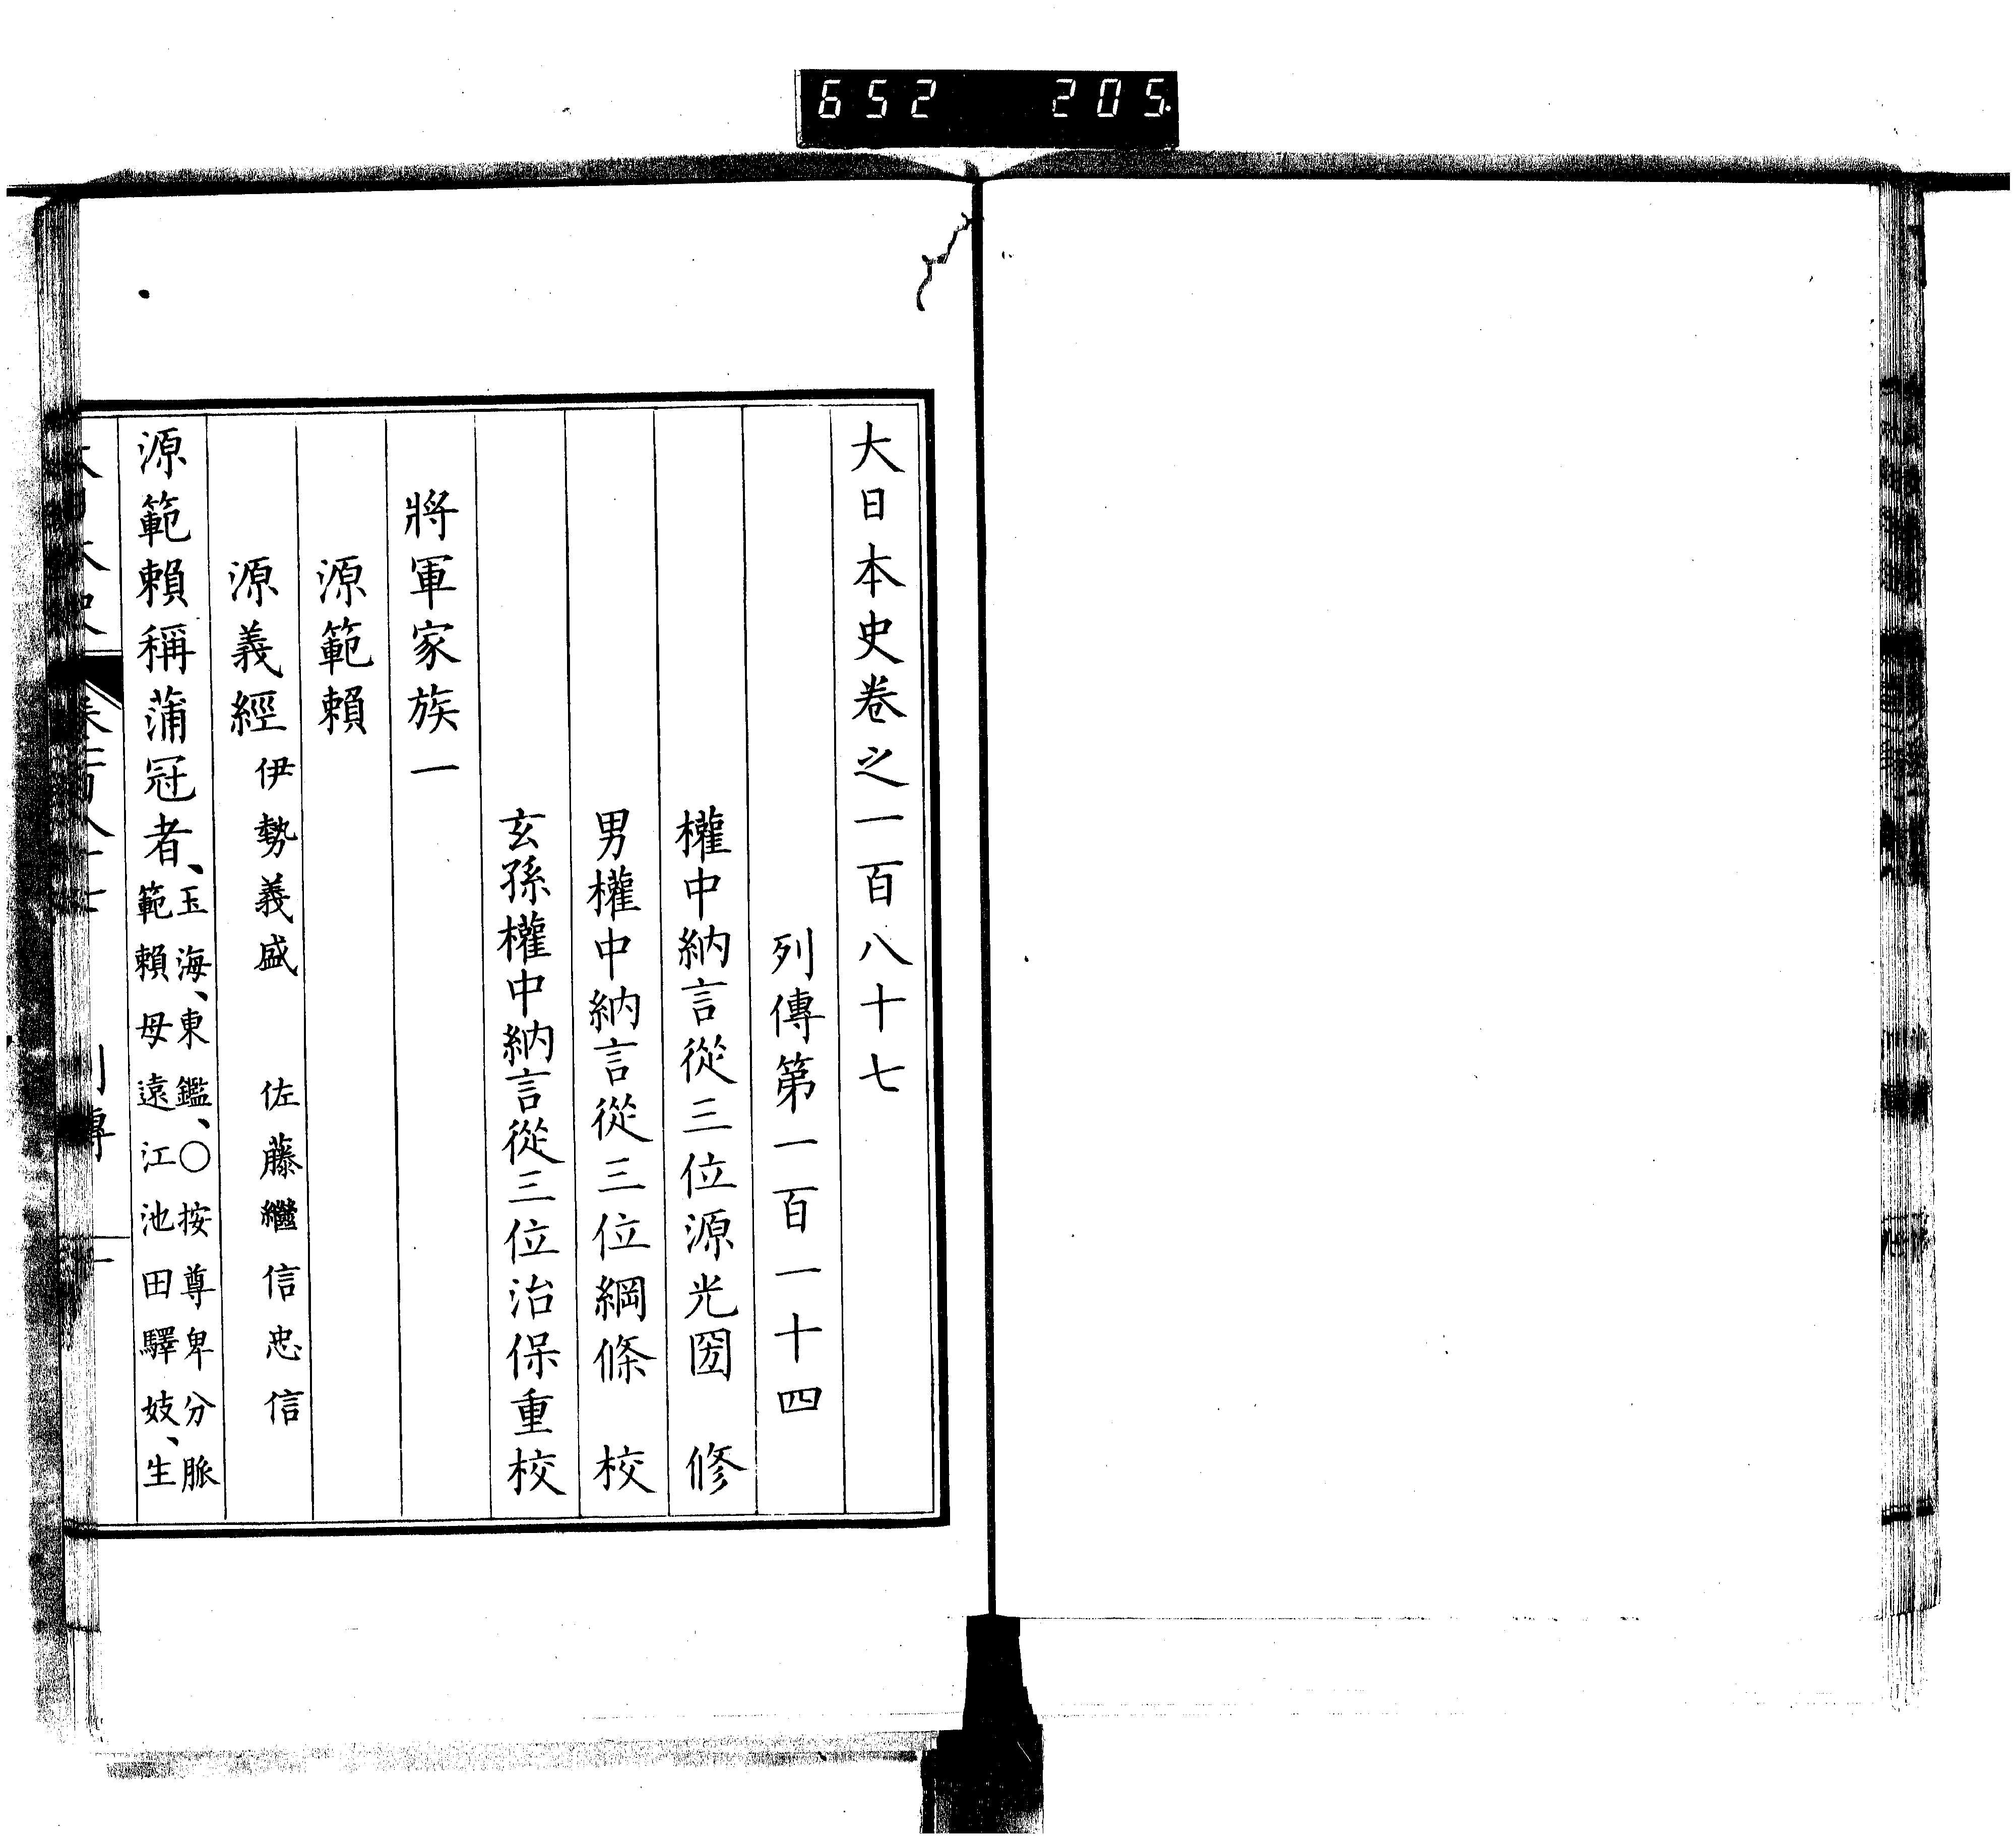 652 205
大日本史卷之一百八十七
列傳第一百一十四
權中納言從三位源光圀 修
男權中納言從三位綱條 校
玄孫權中納言從三位治保重校
將軍家族一
源範賴
源義經 伊勢義盛 佐藤繼信忠信
源範賴稱蒲冠者、
玉海、東鑑、〇按尊卑分脈
範賴母遠江池田驛妓、生